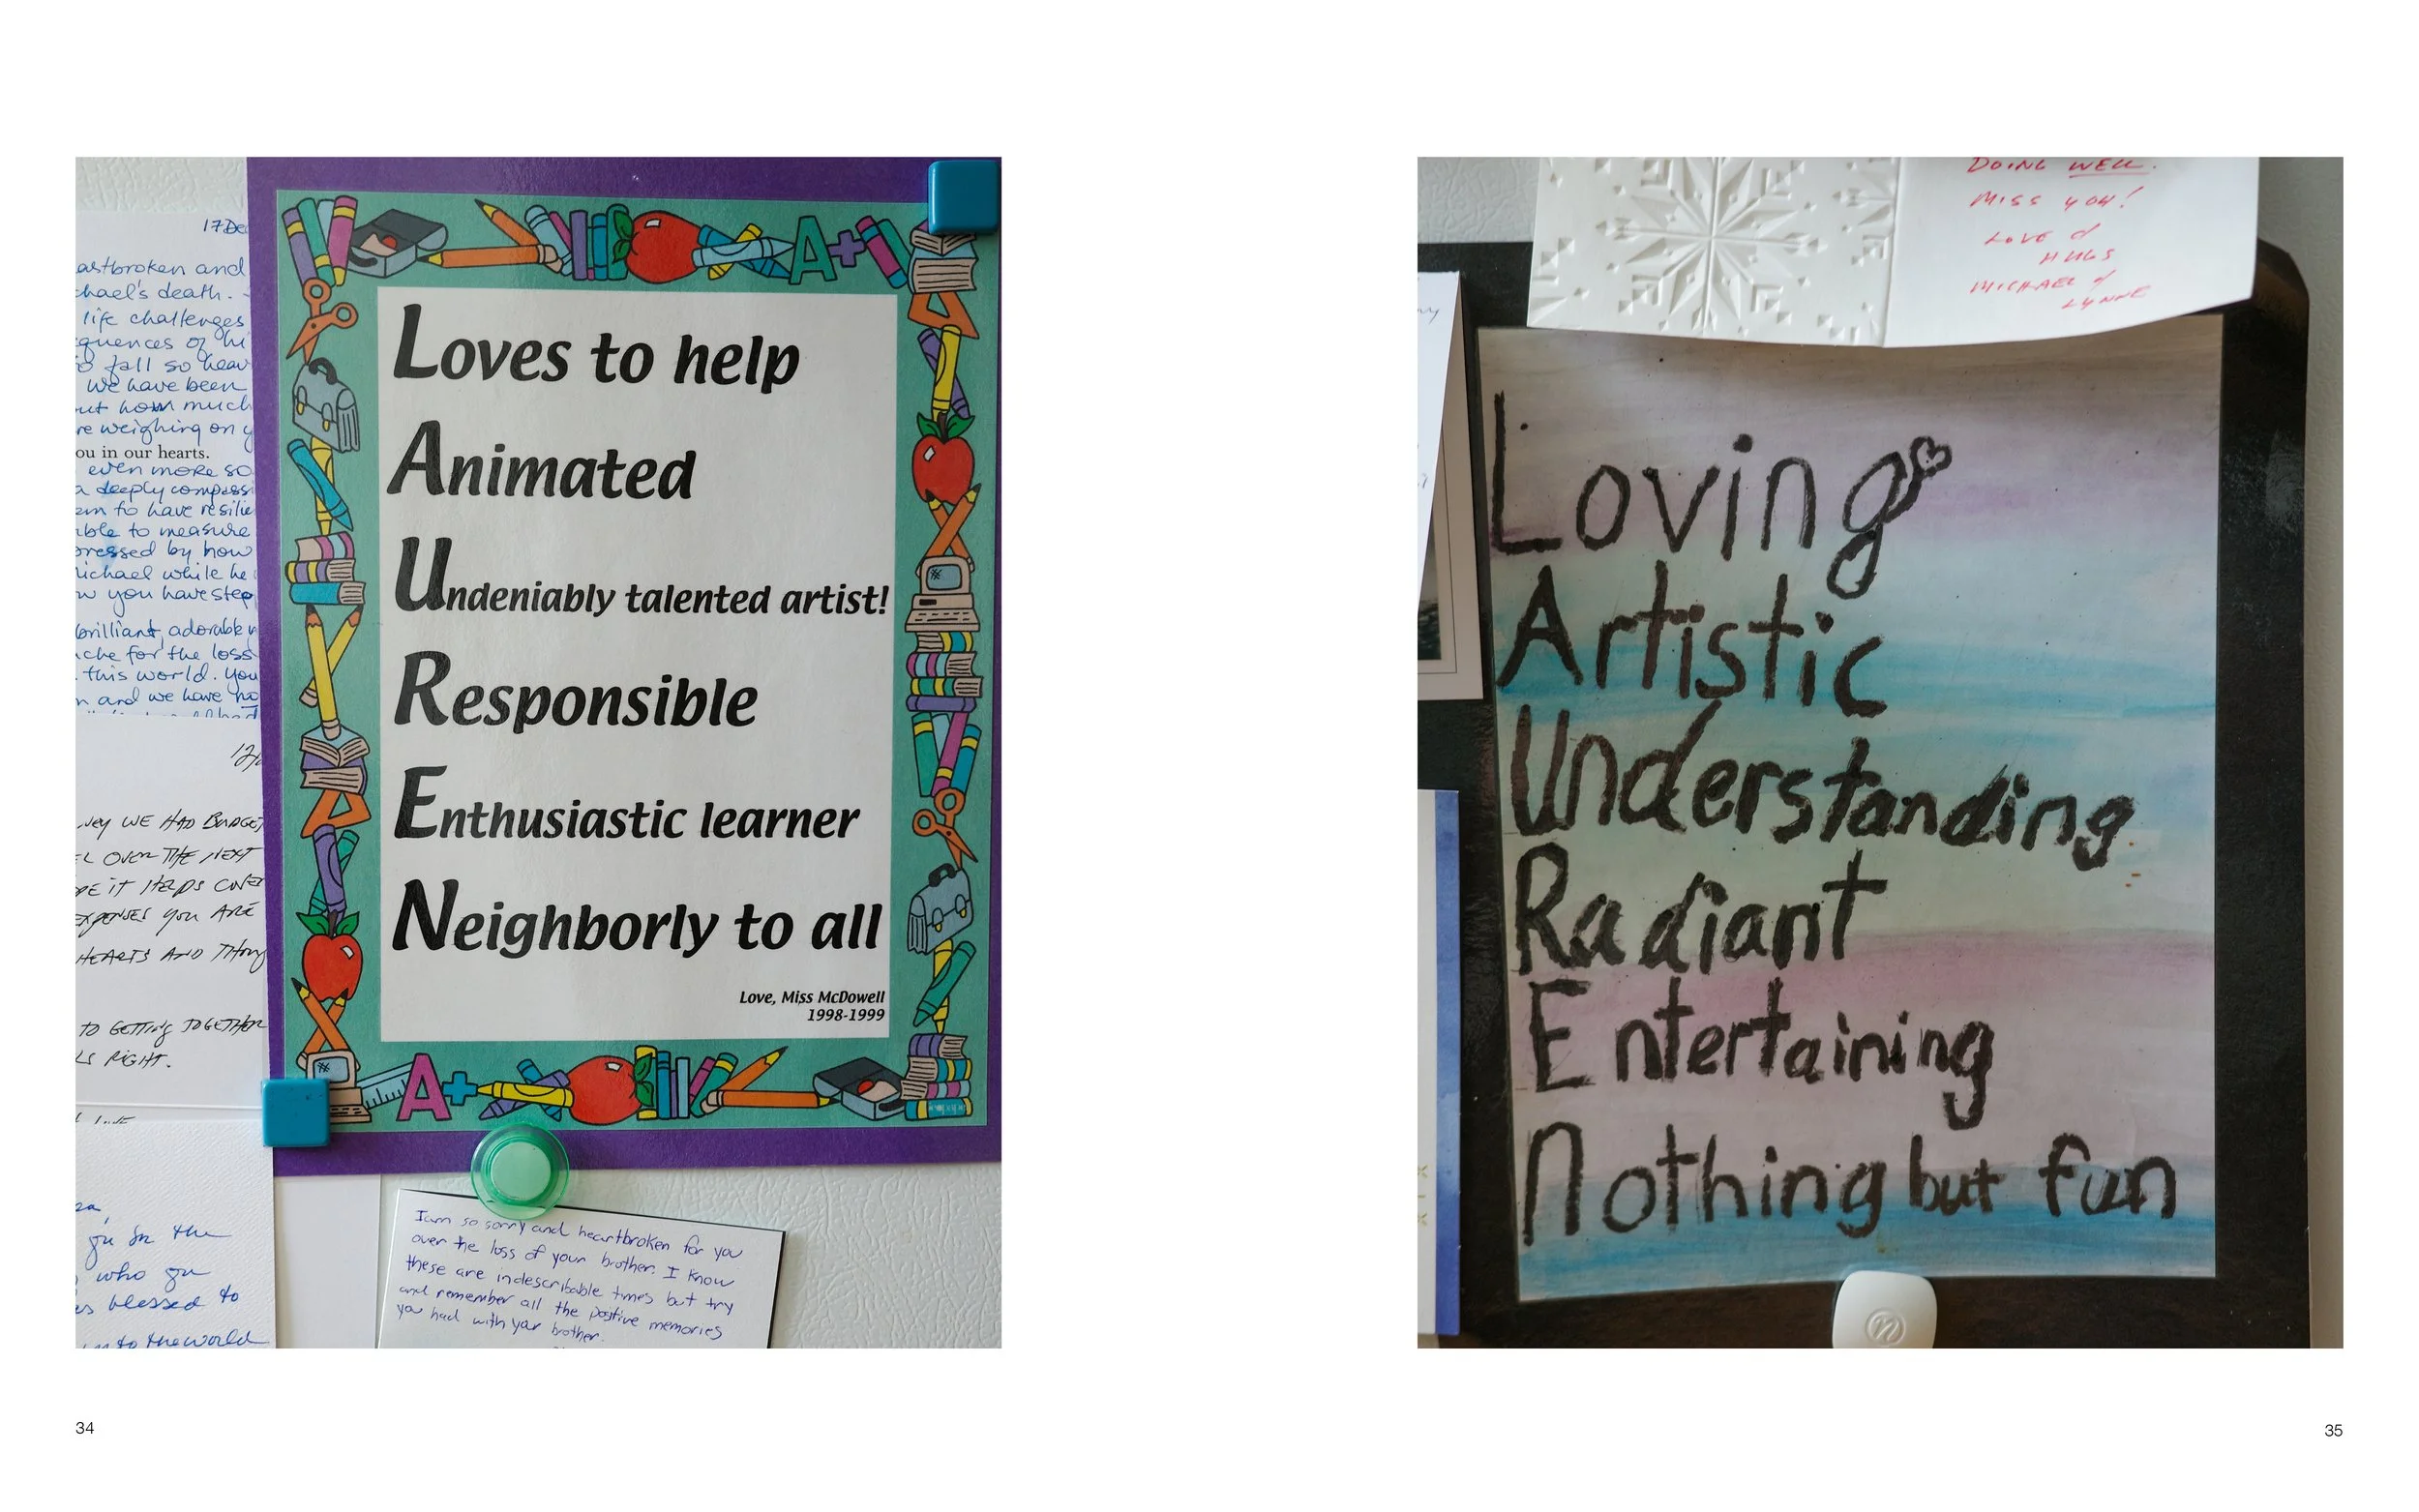 17 Dec
and
chael's death.
life challenges
quences of hi
o fall so heav
we have been
ut how much
re weighing on y
ou in our hearts.
even more so
a deeply compass
em to have resilie
ble to measure
pressed by how
Michael while he
w you have step
brilliant, adorable
che for the loss
this world. You
n and we have no
WE HAD BUDGET
OVER THE NEXT
IT HELPS COVER
EXPENSES YOU ARE
HEARTS AND THOUG
TO GETTING TOGETHER
RIGHT.
in the
who
blessed to
to the world
Loves to help
Animated
Undeniably talented artist!
Responsible
Enthusiastic learner
Neighborly to all
Love, Miss McDowell
1998-1999
I am so sorry and heartbroken for you
over the loss of your brother. I know
these are indescribable times but try
and remember all the positive memories
you had with your brother.
34
DOING WELL.
MISS YOU!
LOVE &
HUGS
MICHAEL &
LYNNE
Loving
Artistic
Understanding
Radiant
Entertaining
Nothing but fun
35